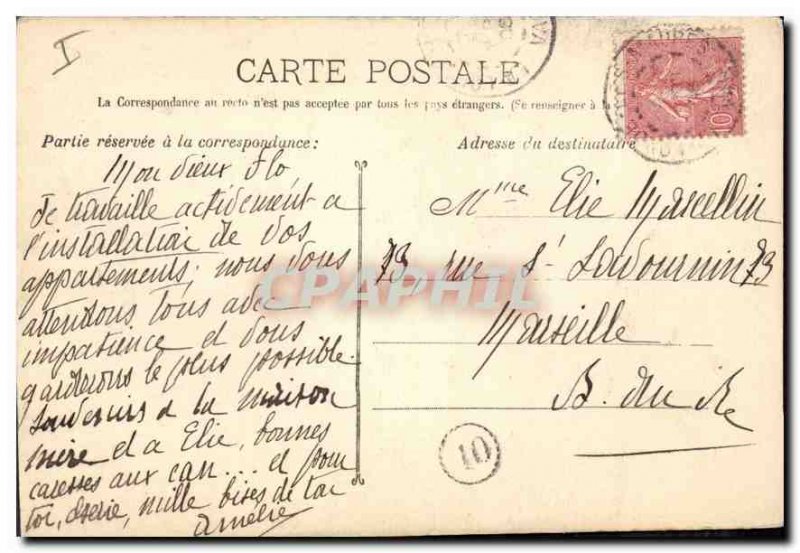 I
CARTE POSTALE
La Correspondance au recto n'est pas acceptee par tous les pays étrangers. (Se renseigner à la
Partie réservée à la correspondance :
Adresse du destinataire
Mon vieux Flo,
Je travaille activement a
l'installation de vos
appartements; nous vous
attendons tous avec
impatience et vous
garderons le plus possible.
Souvenirs a la maison
mère et a Elie, bonnes
caresses aux can... et pour
toi, mille bises de ta
Amélie
Mme Elie Marcellin
73, rue St Savournin 73
Marseille
B. du Re
10
10
CPAPHIL